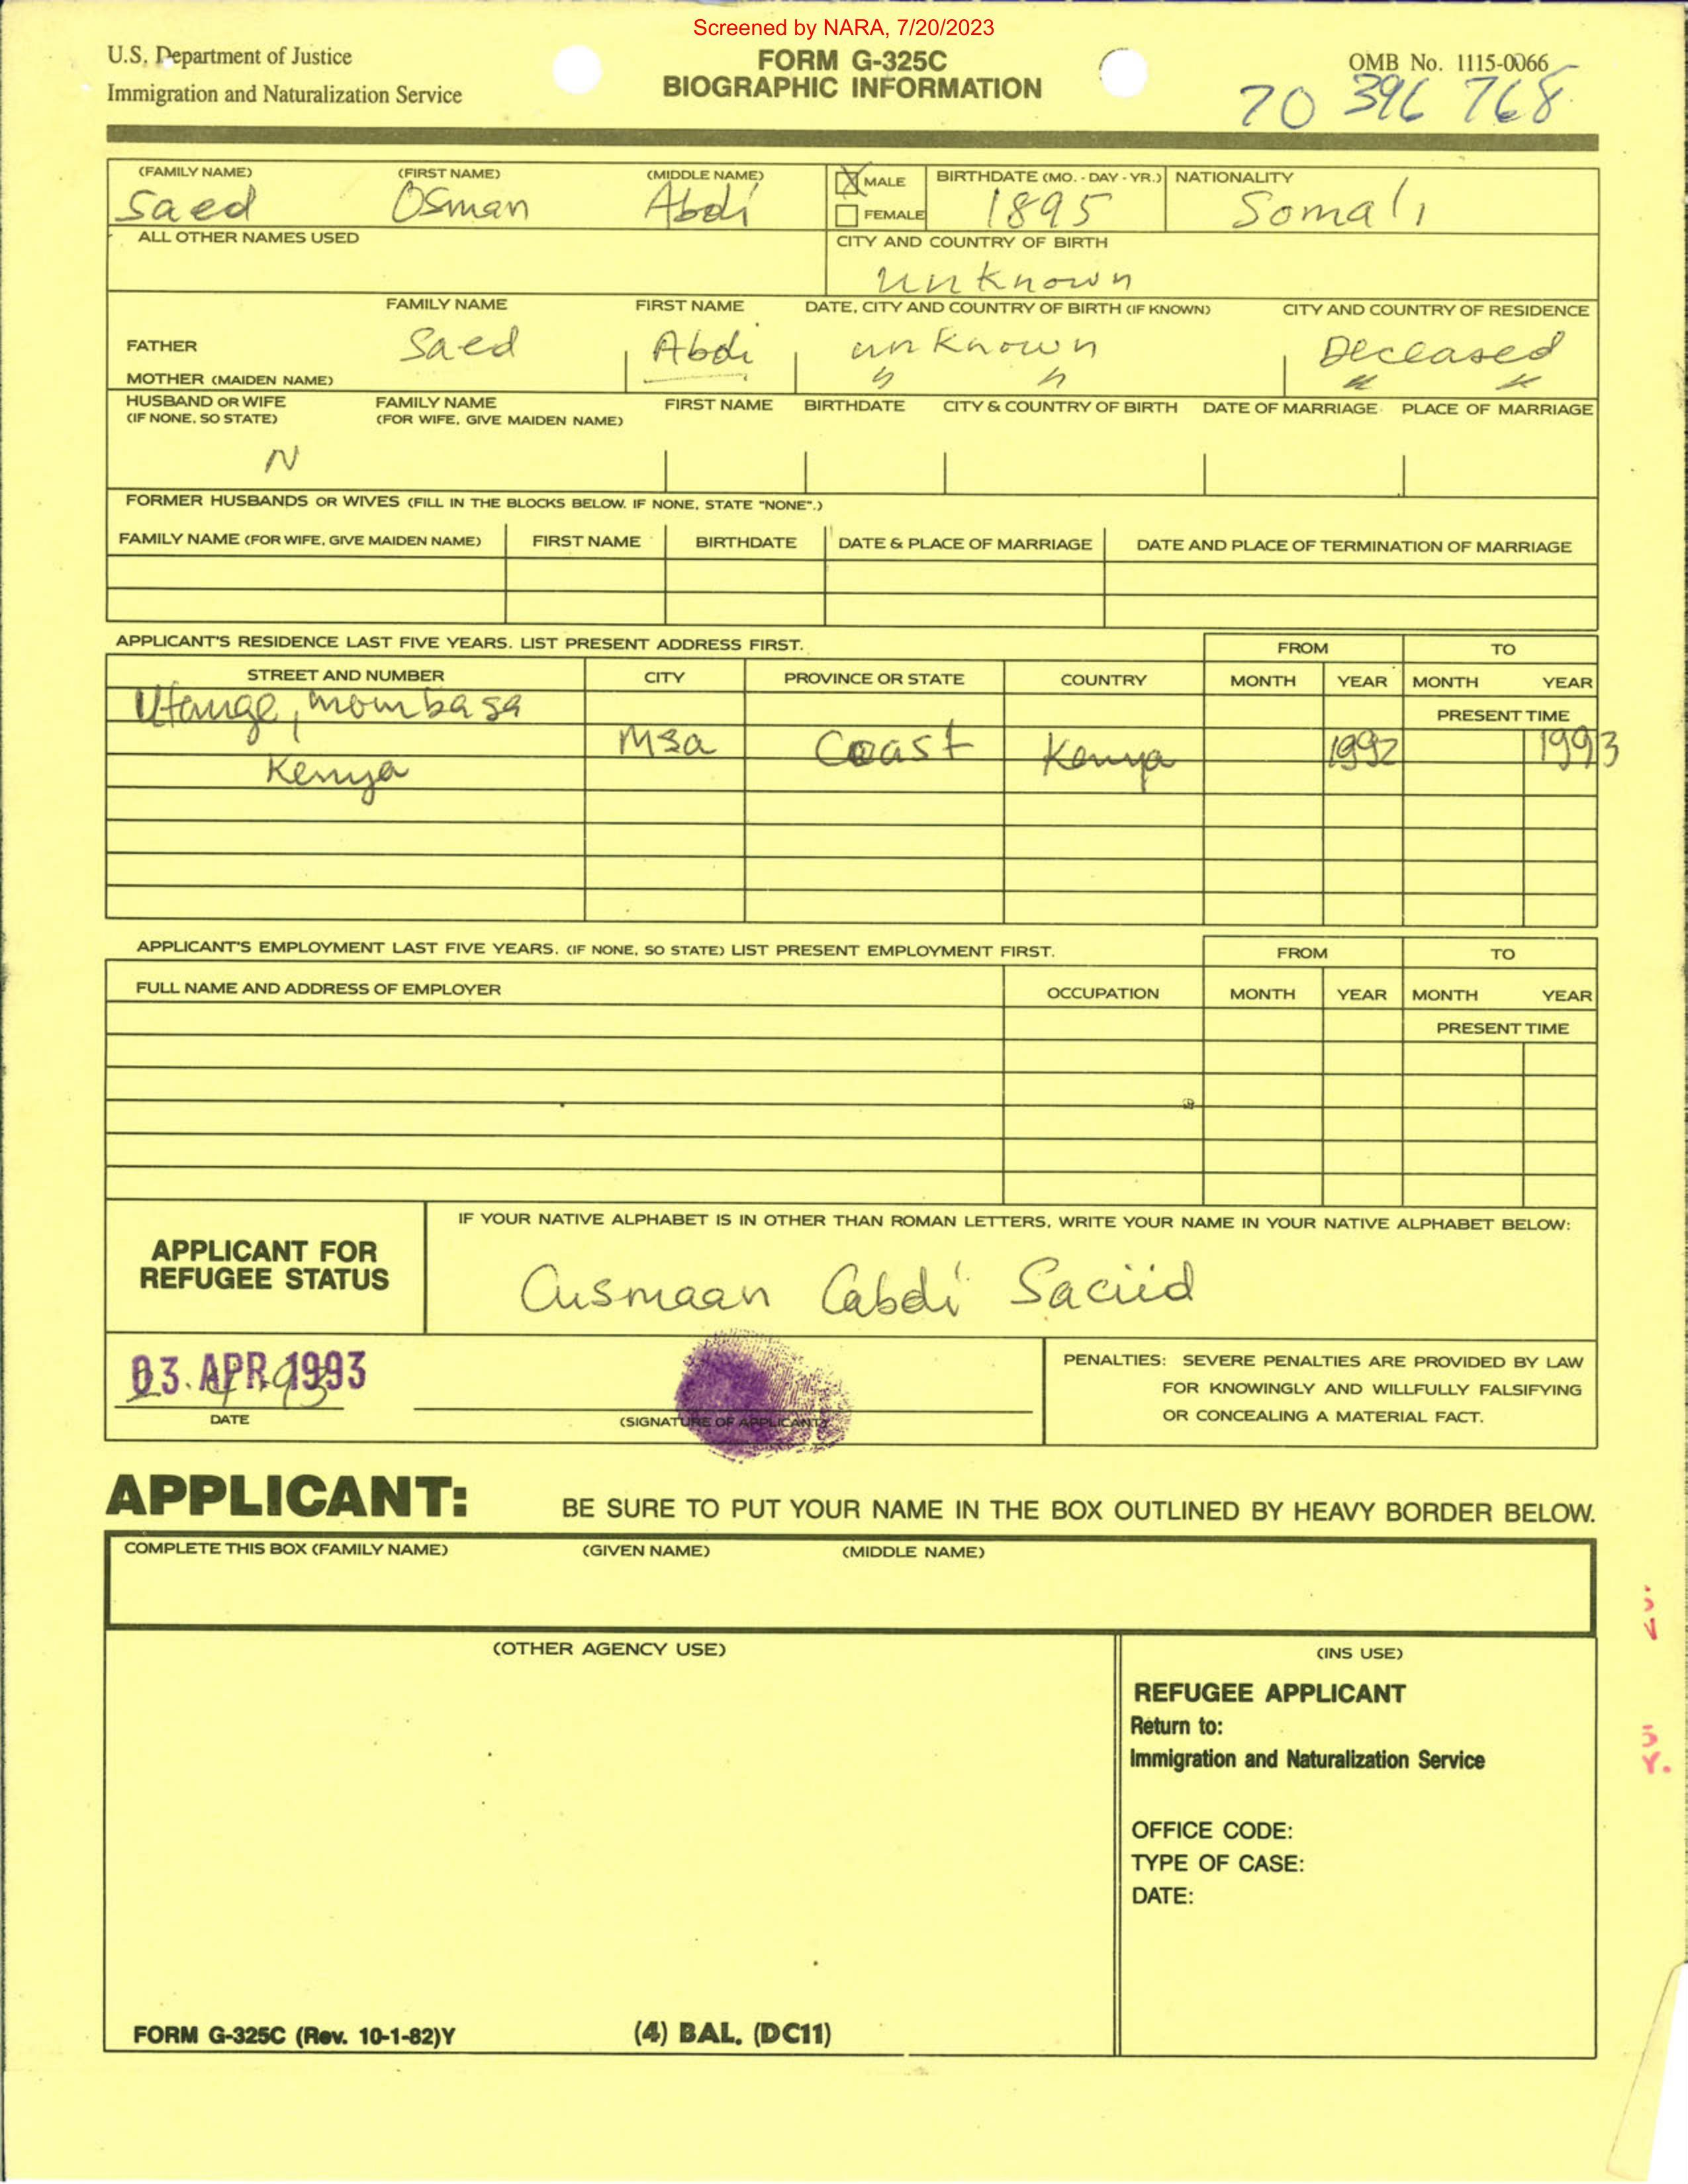 Screened by NARA, 7/20/2023
U.S. Department of Justice
Immigration and Naturalization Service
FORM G-325C
BIOGRAPHIC INFORMATION
OMB No. 1115-0066
70 396 768
(FAMILY NAME) (FIRST NAME) (MIDDLE NAME) MALE BIRTHDATE (MO. - DAY - YR.) NATIONALITY
Saed Osman Abdi FEMALE 1895 Somali
ALL OTHER NAMES USED CITY AND COUNTRY OF BIRTH
unknown
FAMILY NAME FIRST NAME DATE, CITY AND COUNTRY OF BIRTH (IF KNOWN) CITY AND COUNTRY OF RESIDENCE
FATHER Saed Abdi unknown Deceased
MOTHER (MAIDEN NAME) " " " "
HUSBAND OR WIFE FAMILY NAME FIRST NAME BIRTHDATE CITY & COUNTRY OF BIRTH DATE OF MARRIAGE PLACE OF MARRIAGE
(IF NONE, SO STATE) (FOR WIFE, GIVE MAIDEN NAME)
N
FORMER HUSBANDS OR WIVES (FILL IN THE BLOCKS BELOW. IF NONE, STATE "NONE".)
FAMILY NAME (FOR WIFE, GIVE MAIDEN NAME) FIRST NAME BIRTHDATE DATE & PLACE OF MARRIAGE DATE AND PLACE OF TERMINATION OF MARRIAGE
APPLICANT'S RESIDENCE LAST FIVE YEARS. LIST PRESENT ADDRESS FIRST. FROM TO
STREET AND NUMBER CITY PROVINCE OR STATE COUNTRY MONTH YEAR MONTH YEAR
Utange, mombasa PRESENT TIME
Msa Coast Kenya 1992 1993
Kenya
APPLICANT'S EMPLOYMENT LAST FIVE YEARS. (IF NONE, SO STATE) LIST PRESENT EMPLOYMENT FIRST. FROM TO
FULL NAME AND ADDRESS OF EMPLOYER OCCUPATION MONTH YEAR MONTH YEAR
PRESENT TIME
APPLICANT FOR
REFUGEE STATUS
IF YOUR NATIVE ALPHABET IS IN OTHER THAN ROMAN LETTERS, WRITE YOUR NAME IN YOUR NATIVE ALPHABET BELOW:
Cusmaan Cabdi Saciid
03. APR 1993
DATE
(SIGNATURE OF APPLICANT)
PENALTIES: SEVERE PENALTIES ARE PROVIDED BY LAW
FOR KNOWINGLY AND WILLFULLY FALSIFYING
OR CONCEALING A MATERIAL FACT.
APPLICANT: BE SURE TO PUT YOUR NAME IN THE BOX OUTLINED BY HEAVY BORDER BELOW.
COMPLETE THIS BOX (FAMILY NAME) (GIVEN NAME) (MIDDLE NAME)
(OTHER AGENCY USE)
(INS USE)
REFUGEE APPLICANT
Return to:
Immigration and Naturalization Service
OFFICE CODE:
TYPE OF CASE:
DATE:
FORM G-325C (Rev. 10-1-82)Y (4) BAL. (DC11)